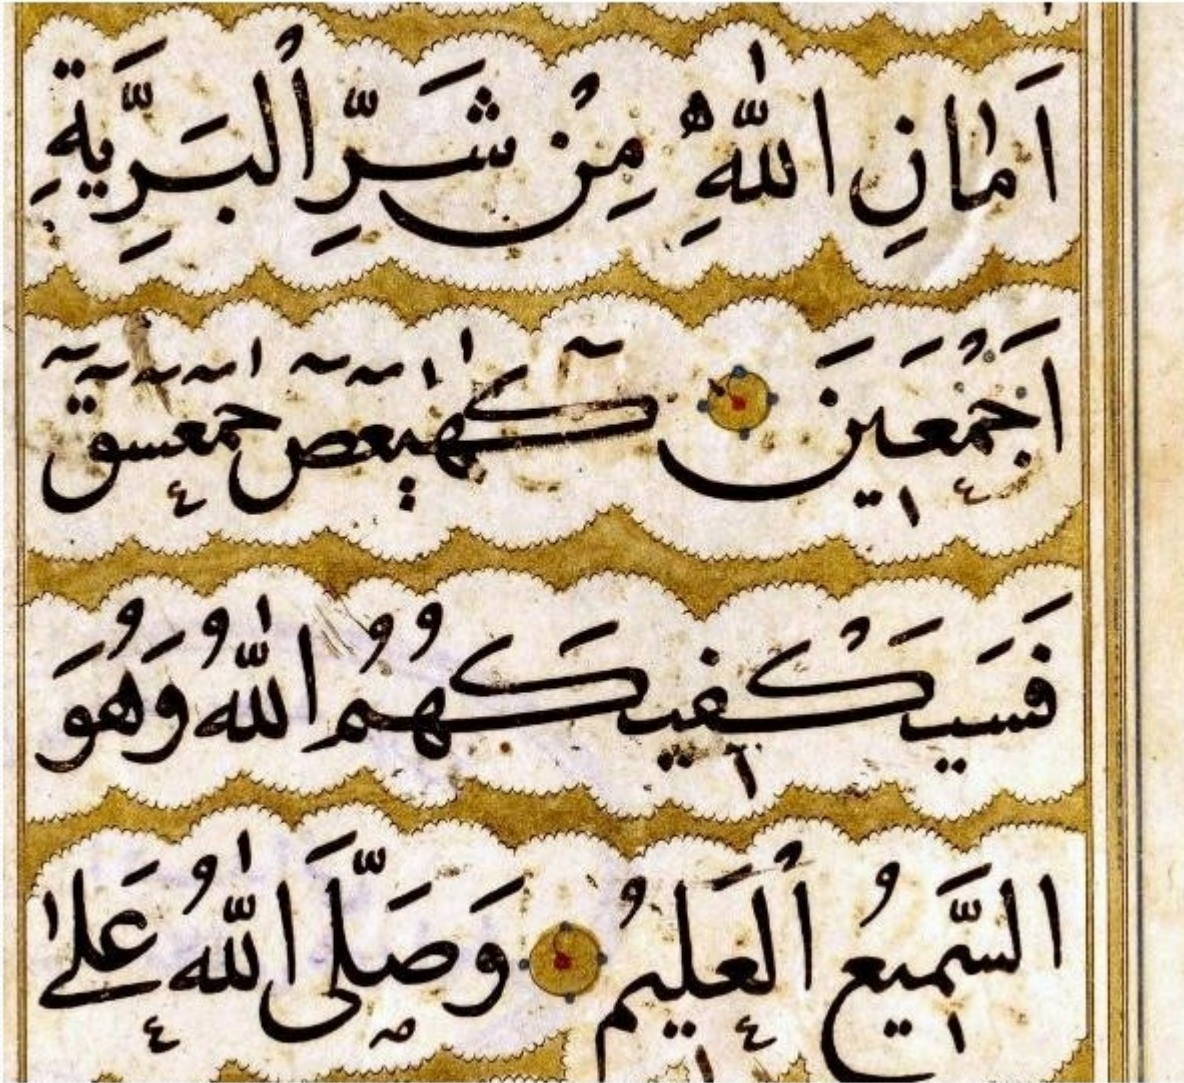 اَمَانِ اللّٰهِ مِنْ شَرِّ الْبَرِيَّةِ
اَجْمَعَينَ كٓهٰيٰعٓصٓ حٰمٓعٓسٓقٓ
فَسَيَكْفيكَهُمُ اللّٰهُ وَهُوَ
السَّميعُ الْعَليمُ وَصَلَّى اللّٰهُ عَلىٰ